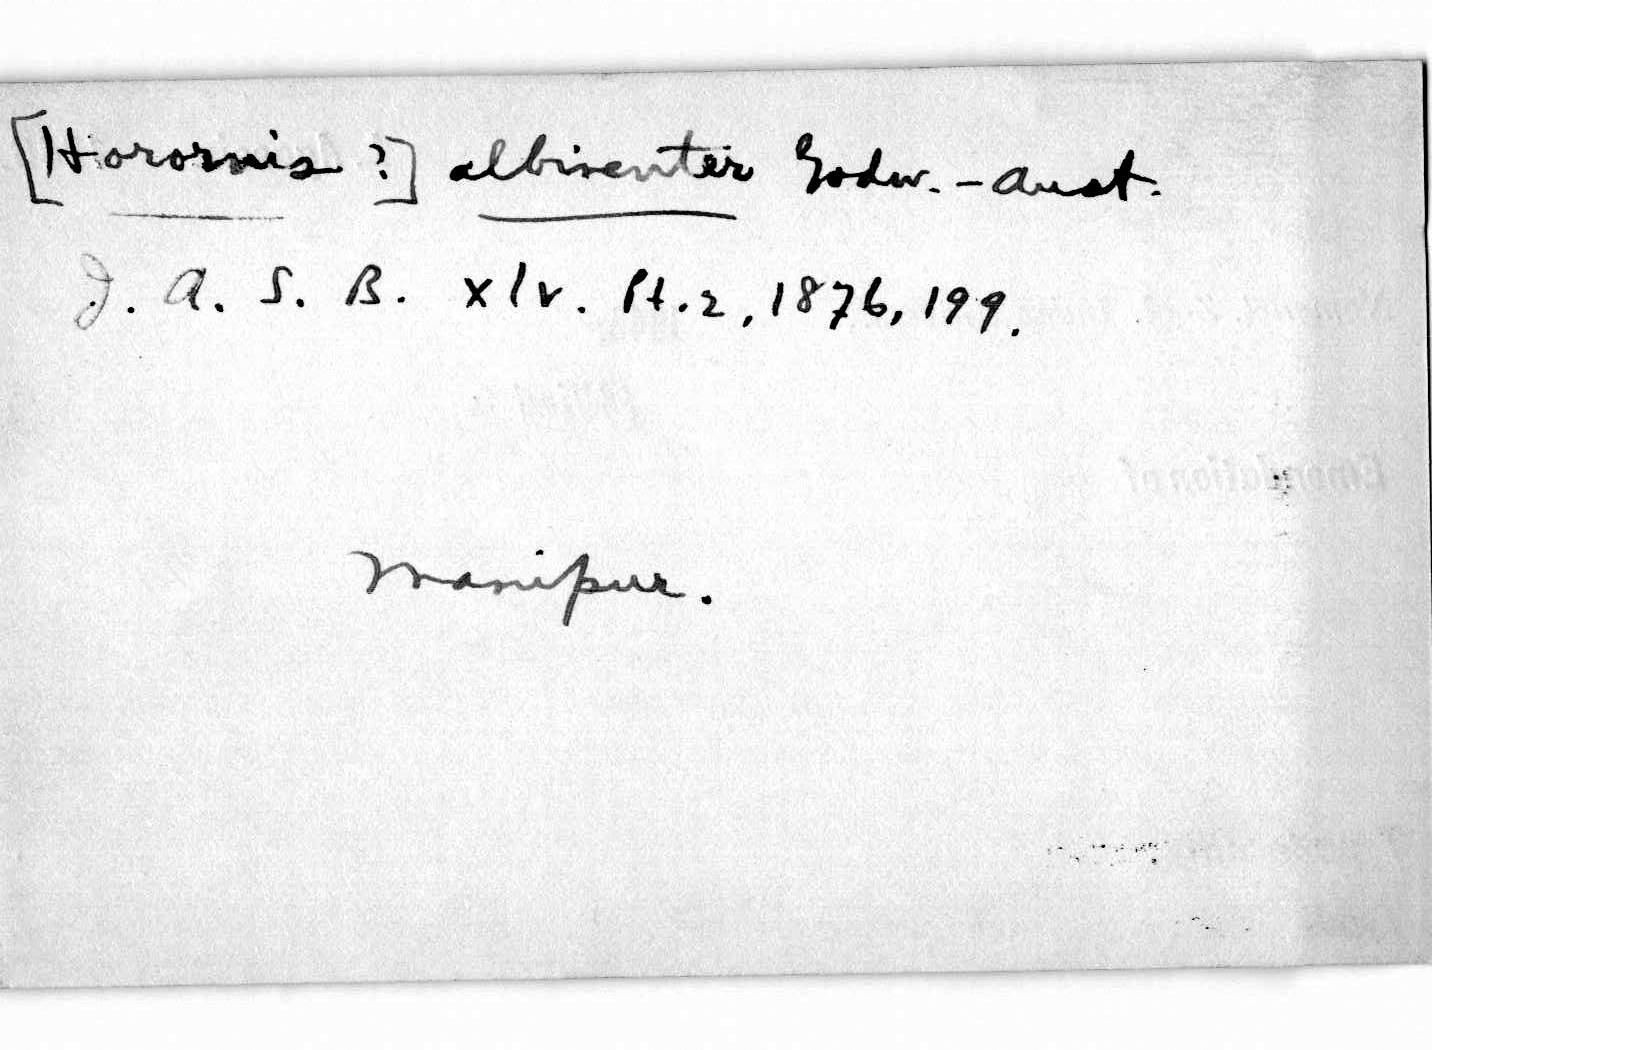 [Horornis ?] albiventer Godw.-Aust.
J. A. S. B. xlv. Pt. 2, 1876, 199.
Manipur.